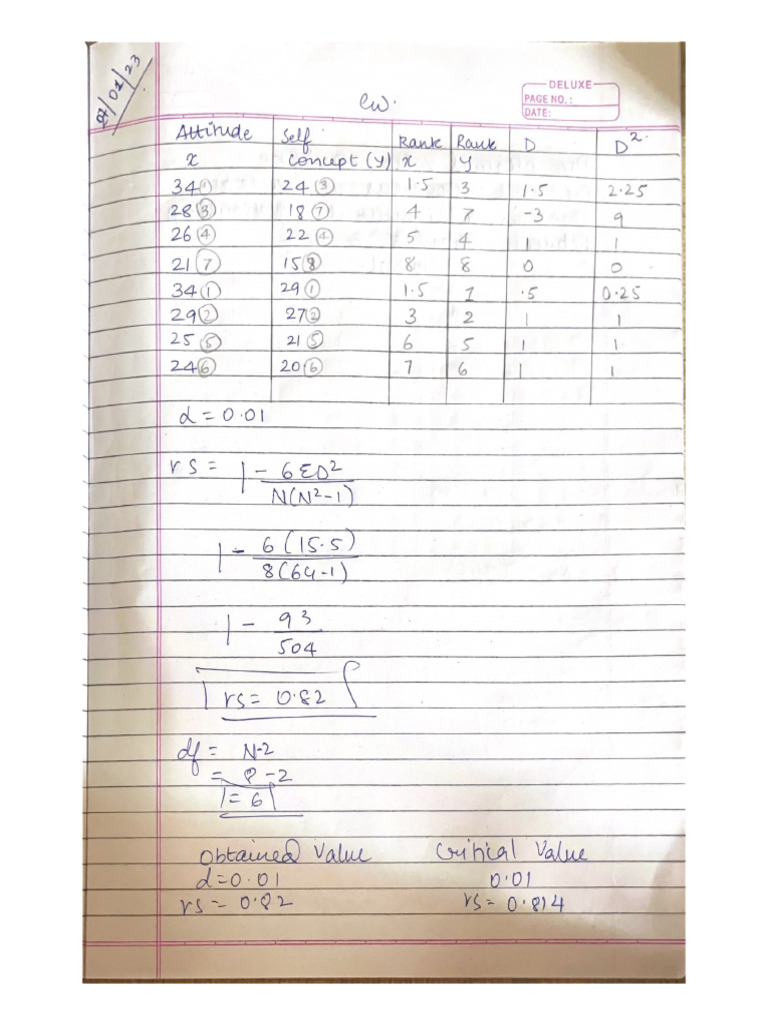 07/02/23
cw.
DELUXE
PAGE NO.:
DATE:
Attitude Self Rank Rank D D²
x concept (y) x y
34 ① 24 ③ 1.5 3 1.5 2.25
28 ③ 18 ⑦ 4 7 -3 9
26 ④ 22 ④ 5 4 1 1
21 ⑦ 15 ⑧ 8 8 0 0
34 ① 29 ① 1.5 1 .5 0.25
29 ② 27 ② 3 2 1 1
25 ⑤ 21 ⑤ 6 5 1 1
24 ⑥ 20 ⑥ 7 6 1 1
α = 0.01
rs = 1 - 6ΣD²
N(N²-1)
1 - 6(15.5)
8(64-1)
1 - 93
504
rs = 0.82
df = N-2
= 8-2
= 6
Obtained Value Critical Value
α = 0.01 0.01
rs = 0.82 rs = 0.814